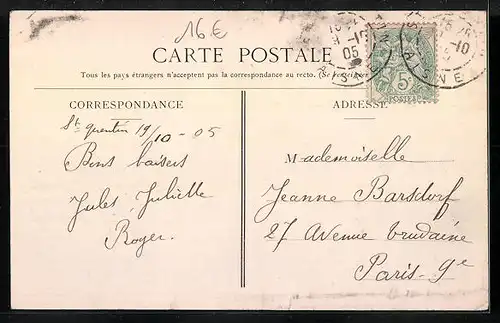 16€
CARTE POSTALE
Tous les pays étrangers n'acceptent pas la correspondance au recto. (Se renseigner
CORRESPONDANCE
ADRESSE
St quentin 19/10 - 05
Bons baisers
Jules, Juliette
Roger.
Mademoiselle
Jeanne Barsdorf
27 Avenue Trudaine
Paris - 9e
5c
POSTES
05
AISNE